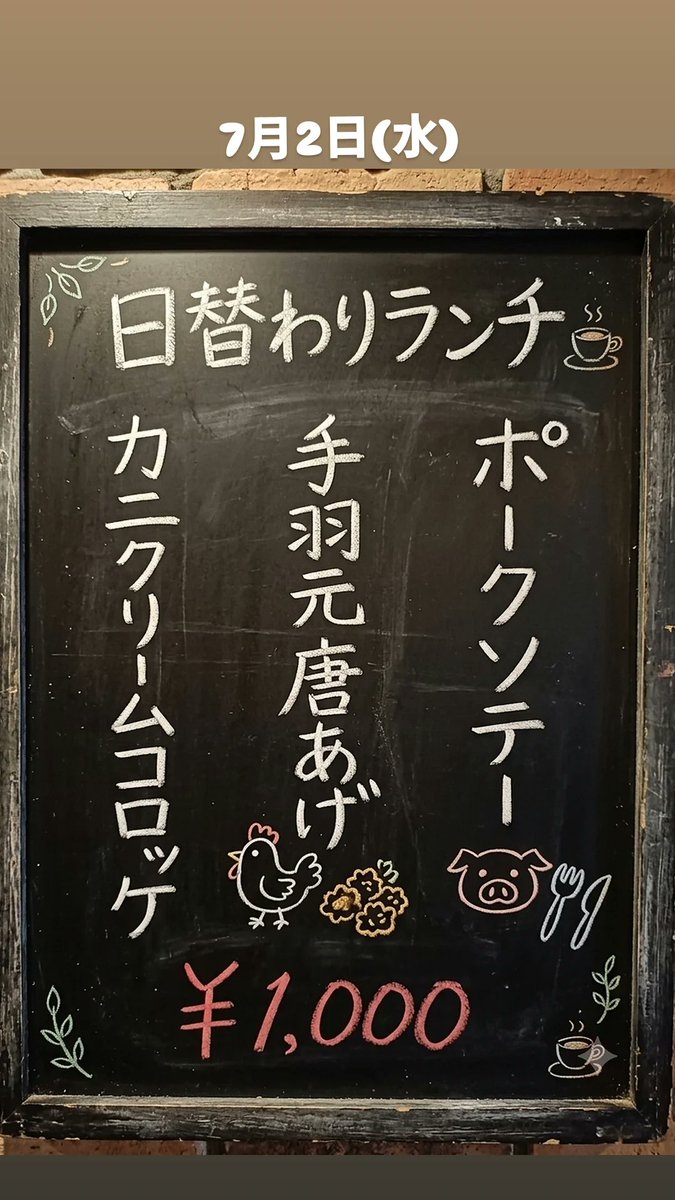 7月2日(水)
日替わりランチ
ポークソテー
手羽元唐あげ
カニクリームコロッケ
¥1,000